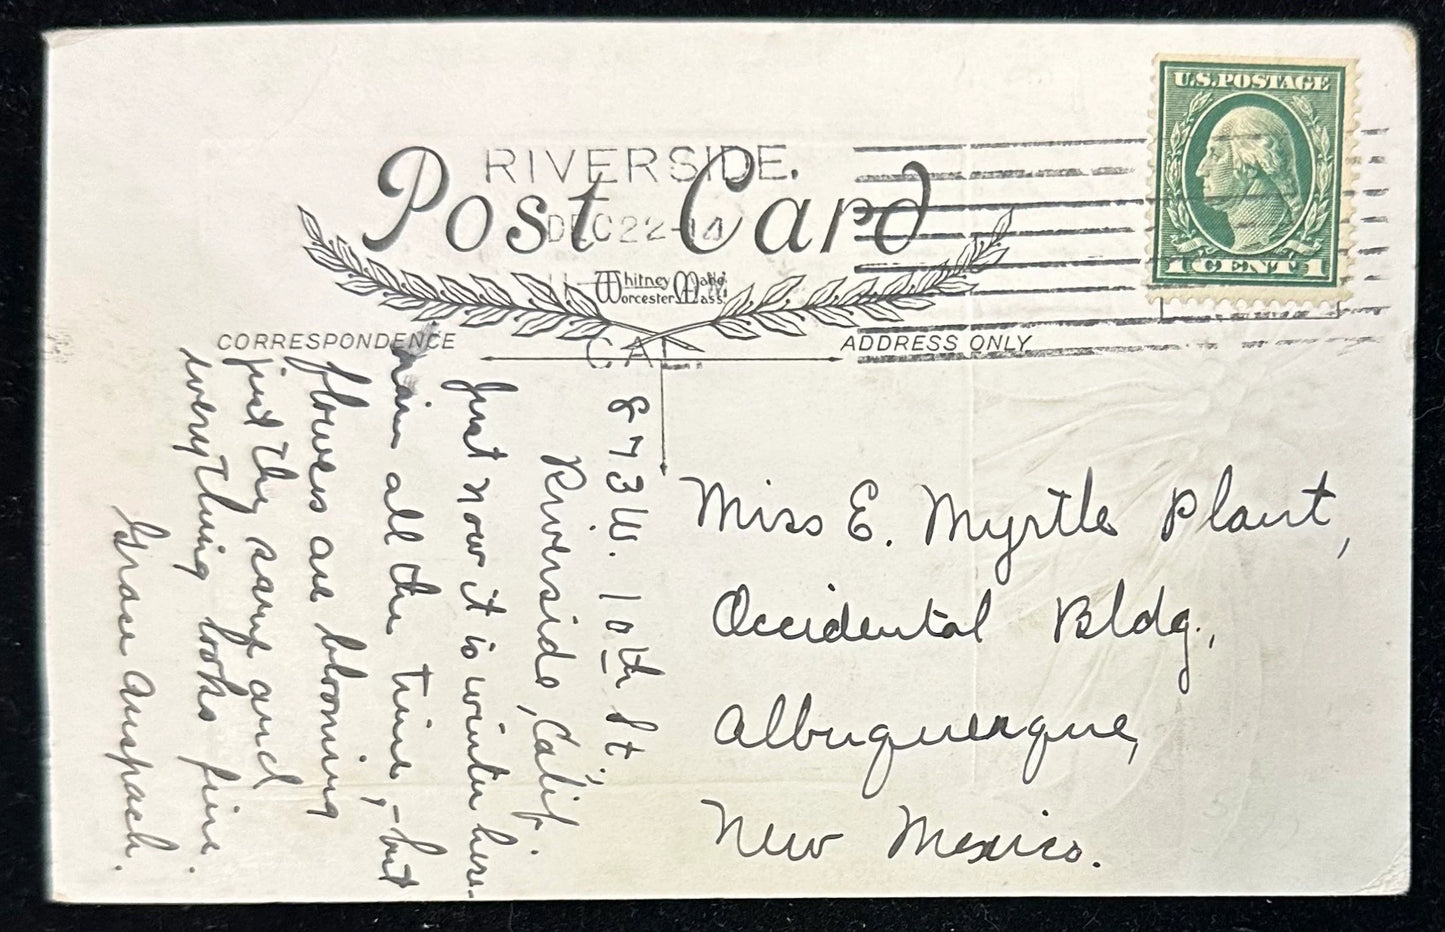 U.S.POSTAGE
1 CENT 1
RIVERSIDE.
DEC 22-14
CAL
Post Card
Whitney Made
Worcester, Mass
CORRESPONDENCE
ADDRESS ONLY
873 W. 10th St.,
Riverside, Calif.
Just now it is winter here.
rain all the time, - but
flowers are blooming
just the same and
everything looks fine.
Grace Anspach.
Miss E. Myrtle Plant,
Occidental Bldg.,
Albuquerque,
New Mexico.